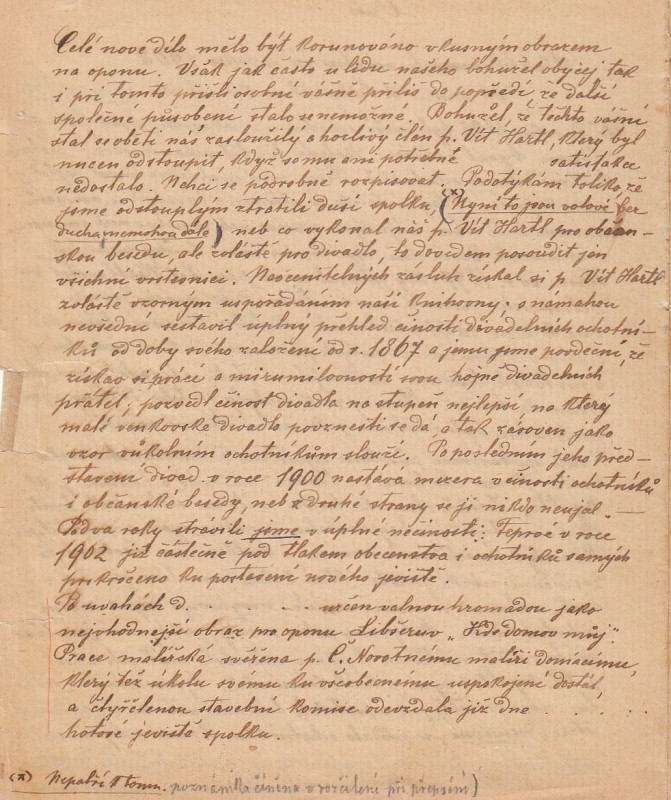 Celé nové dílo mělo být korunováno vkusným obrazem
na oponu. Však jak často u lidu našeho bohužel obyčej tak
i při tomto přišli osobní vášně příliš do popředí že další
společné působení stalo se nemožné. Bohužel, že těchto vášní
stal se obětí náš zasloužilý a horlivý člen p. Vít Hartl, který byl
nucen odstoupit když se mu ani potřebné satisfakce
nedostalo. Nehci se podrobně rozpisovat. Podotýkám toliko že
jsme odstouplým ztratili duši spolku, (x) (Nyní to jsou volové
ducha nemohra dále) neb co vykonal náš p. Vít Hartl pro občan-
skou besedu, ale zvláště pro divadlo, to dovedem posoudit jen
všichni vrstevníci. Neocenitelných zásluh získal si p. Vít Hartl
zvláště vzorným uspořádáním naší knihovny; s námahou
nevšední sestavil úplný přehled činosti divadelních ochotní-
ků od doby svého založení od r. 1867 a jemu jsme povděční, že
získav si prácí a mírumilovností svou hojně divadelních
přátel; pozvedl činost divadla na stupeň nejlepší, na který
malé venkovské divadlo povznésti se dá, a tak zároveň jako
vzor vůkolním ochotníkům slouží. Po posledním jeho před-
stavení divad. v roce 1900 nastává mezera v činosti ochotníků
i občánské besedy, neb z druhé strany se jí nikdo neujal. —
Po dva roky strávili jsme v úplné nečinosti. Teprvé v roce
1902 již částečně pod tlakem obecenstva i ochotníků samých
prikročeno ku postavení nového jeviště.
Po úvahách d. . . . . . . určen valnou hromadou jako
nejvhodnější obraz pro oponu Libšerův „Kde domov můj".
Práce malířská svěřena p. C. Novotnému malíři domácímu,
který též úkolu svému ku všeobecnému uspokojení dostál,
a čtyřčlenou stavební komise odevzdala již dne . . . .
hotové jeviště spolku.
(x) Nepatří k tomu. poznámka činěna v rozčílení při přepsání)